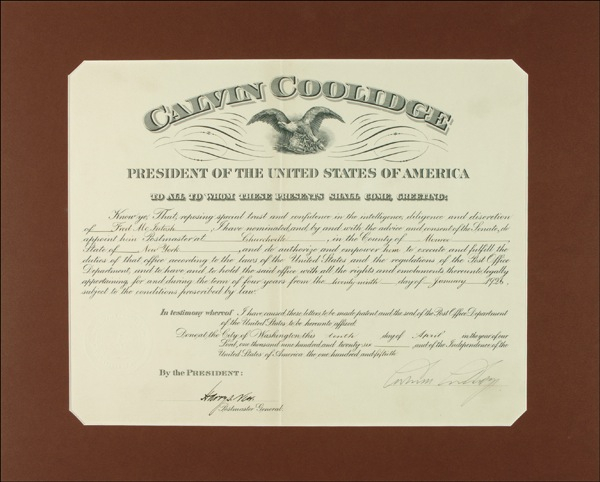 CALVIN COOLIDGE
PRESIDENT OF THE UNITED STATES OF AMERICA
TO ALL TO WHOM THESE PRESENTS SHALL COME, GREETING:
Know ye, That, reposing special trust and confidence in the intelligence, diligence and discretion
of Fred McIntosh, I have nominated, and, by and with the advice and consent of the Senate, do
appoint him Postmaster at Churchville, in the County of Monroe,
State of New York, and do authorize and empower him to execute and fulfill the
duties of that office according to the laws of the United States and the regulations of the Post Office
Department, and to have and to hold the said office with all the rights and emoluments thereunto legally
appertaining for and during the term of four years from the twenty-ninth day of January 1926,
subject to the conditions prescribed by law.
In testimony whereof I have caused these letters to be made patent and the seal of the Post Office Department
of the United States to be hereunto affixed.
Done at the City of Washington this day of April in the year of our
Lord, one thousand nine hundred and twenty-six and of the Independence of the
United States of America the one hundred and fiftieth
By the PRESIDENT:
Harry S. New
Postmaster General.
Calvin Coolidge